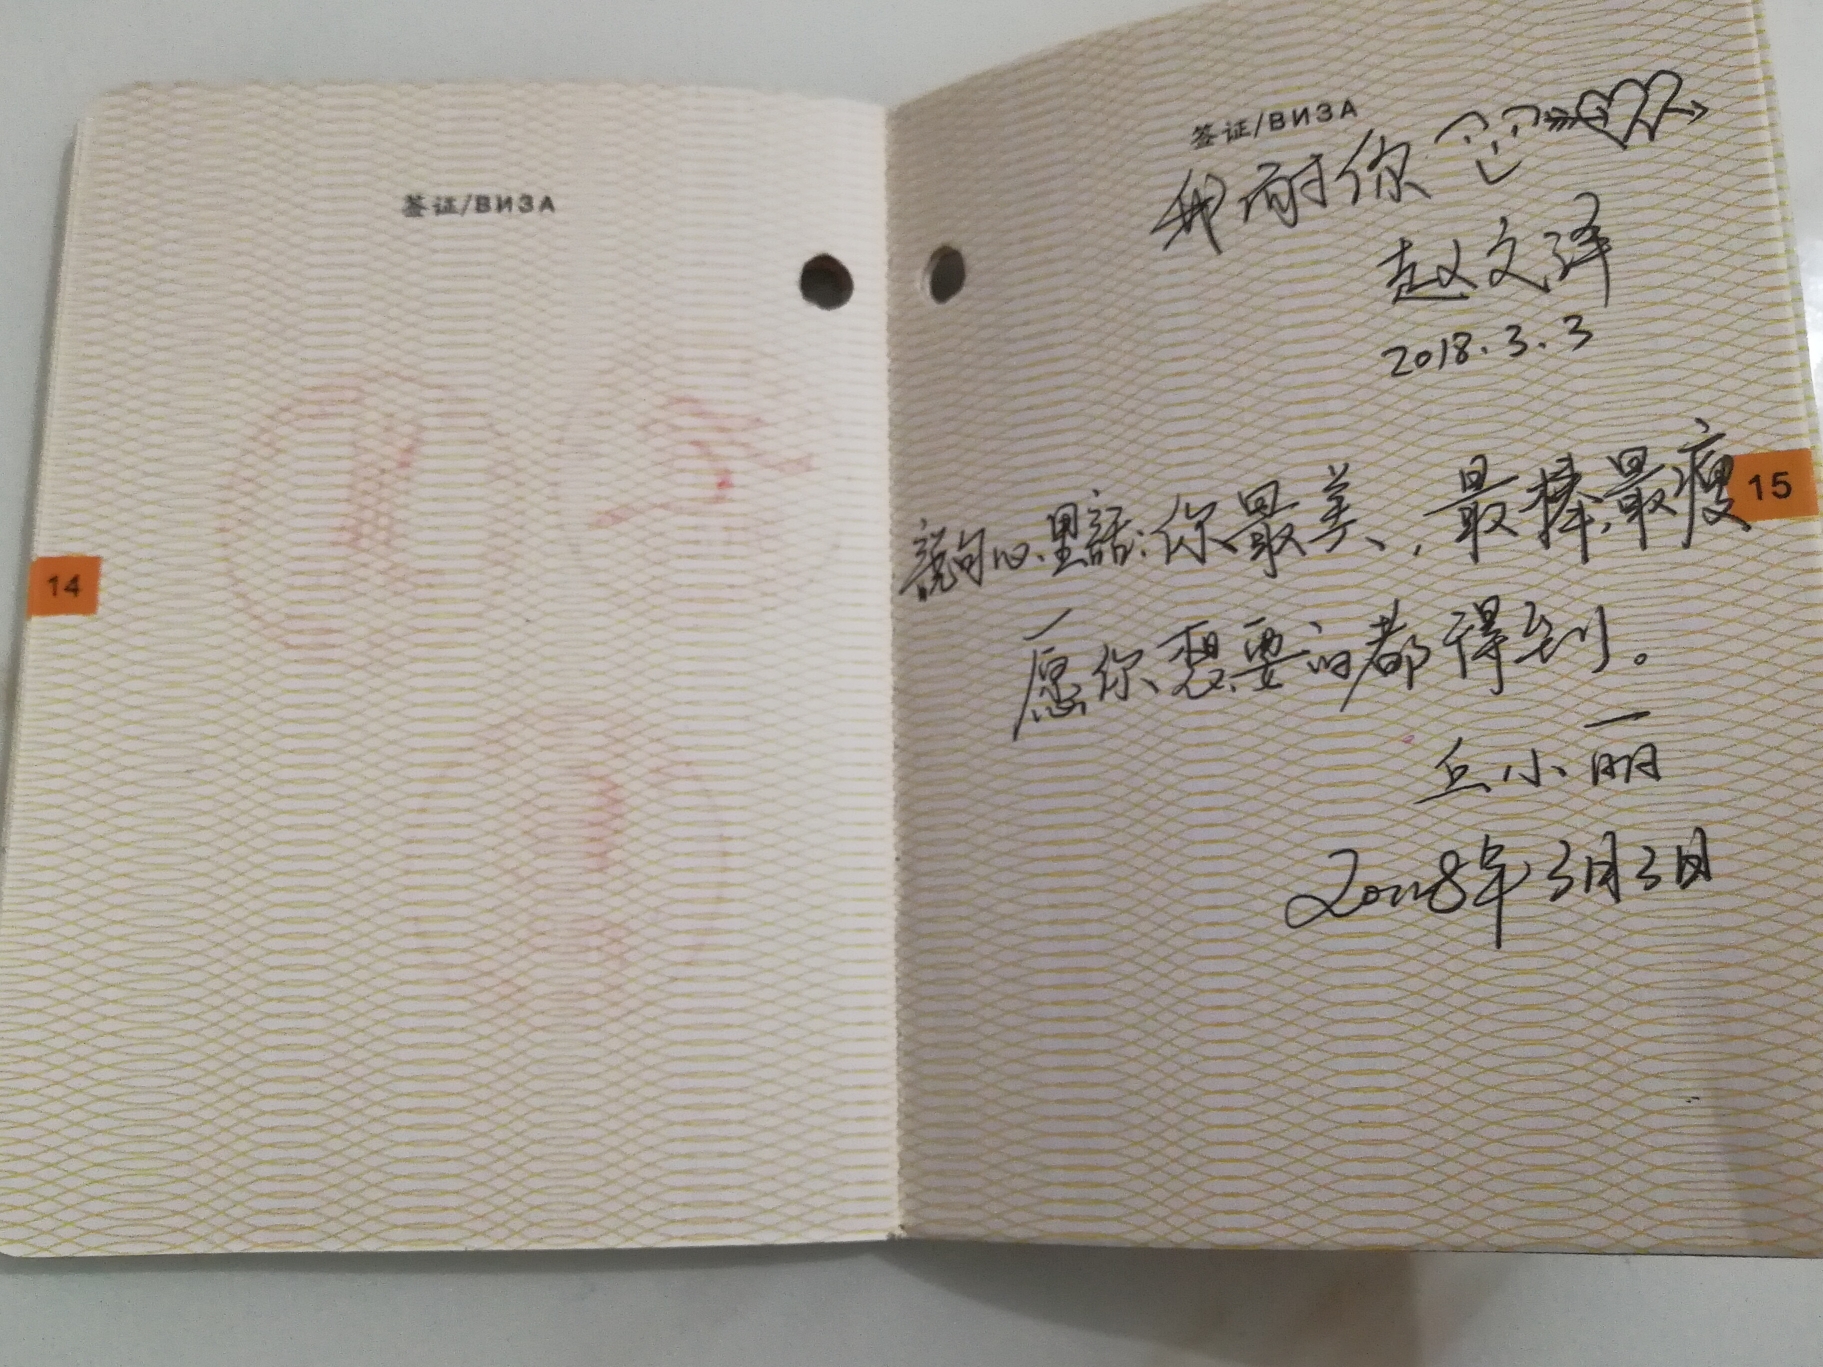 签证/ВИЗА
14
签证/ВИЗА
我耐你
赵文泽
2018.3.3
說句心里話:你最美,最棒,最瘦
15
愿你想要的都得到。
丘小丽
2018年3月3日